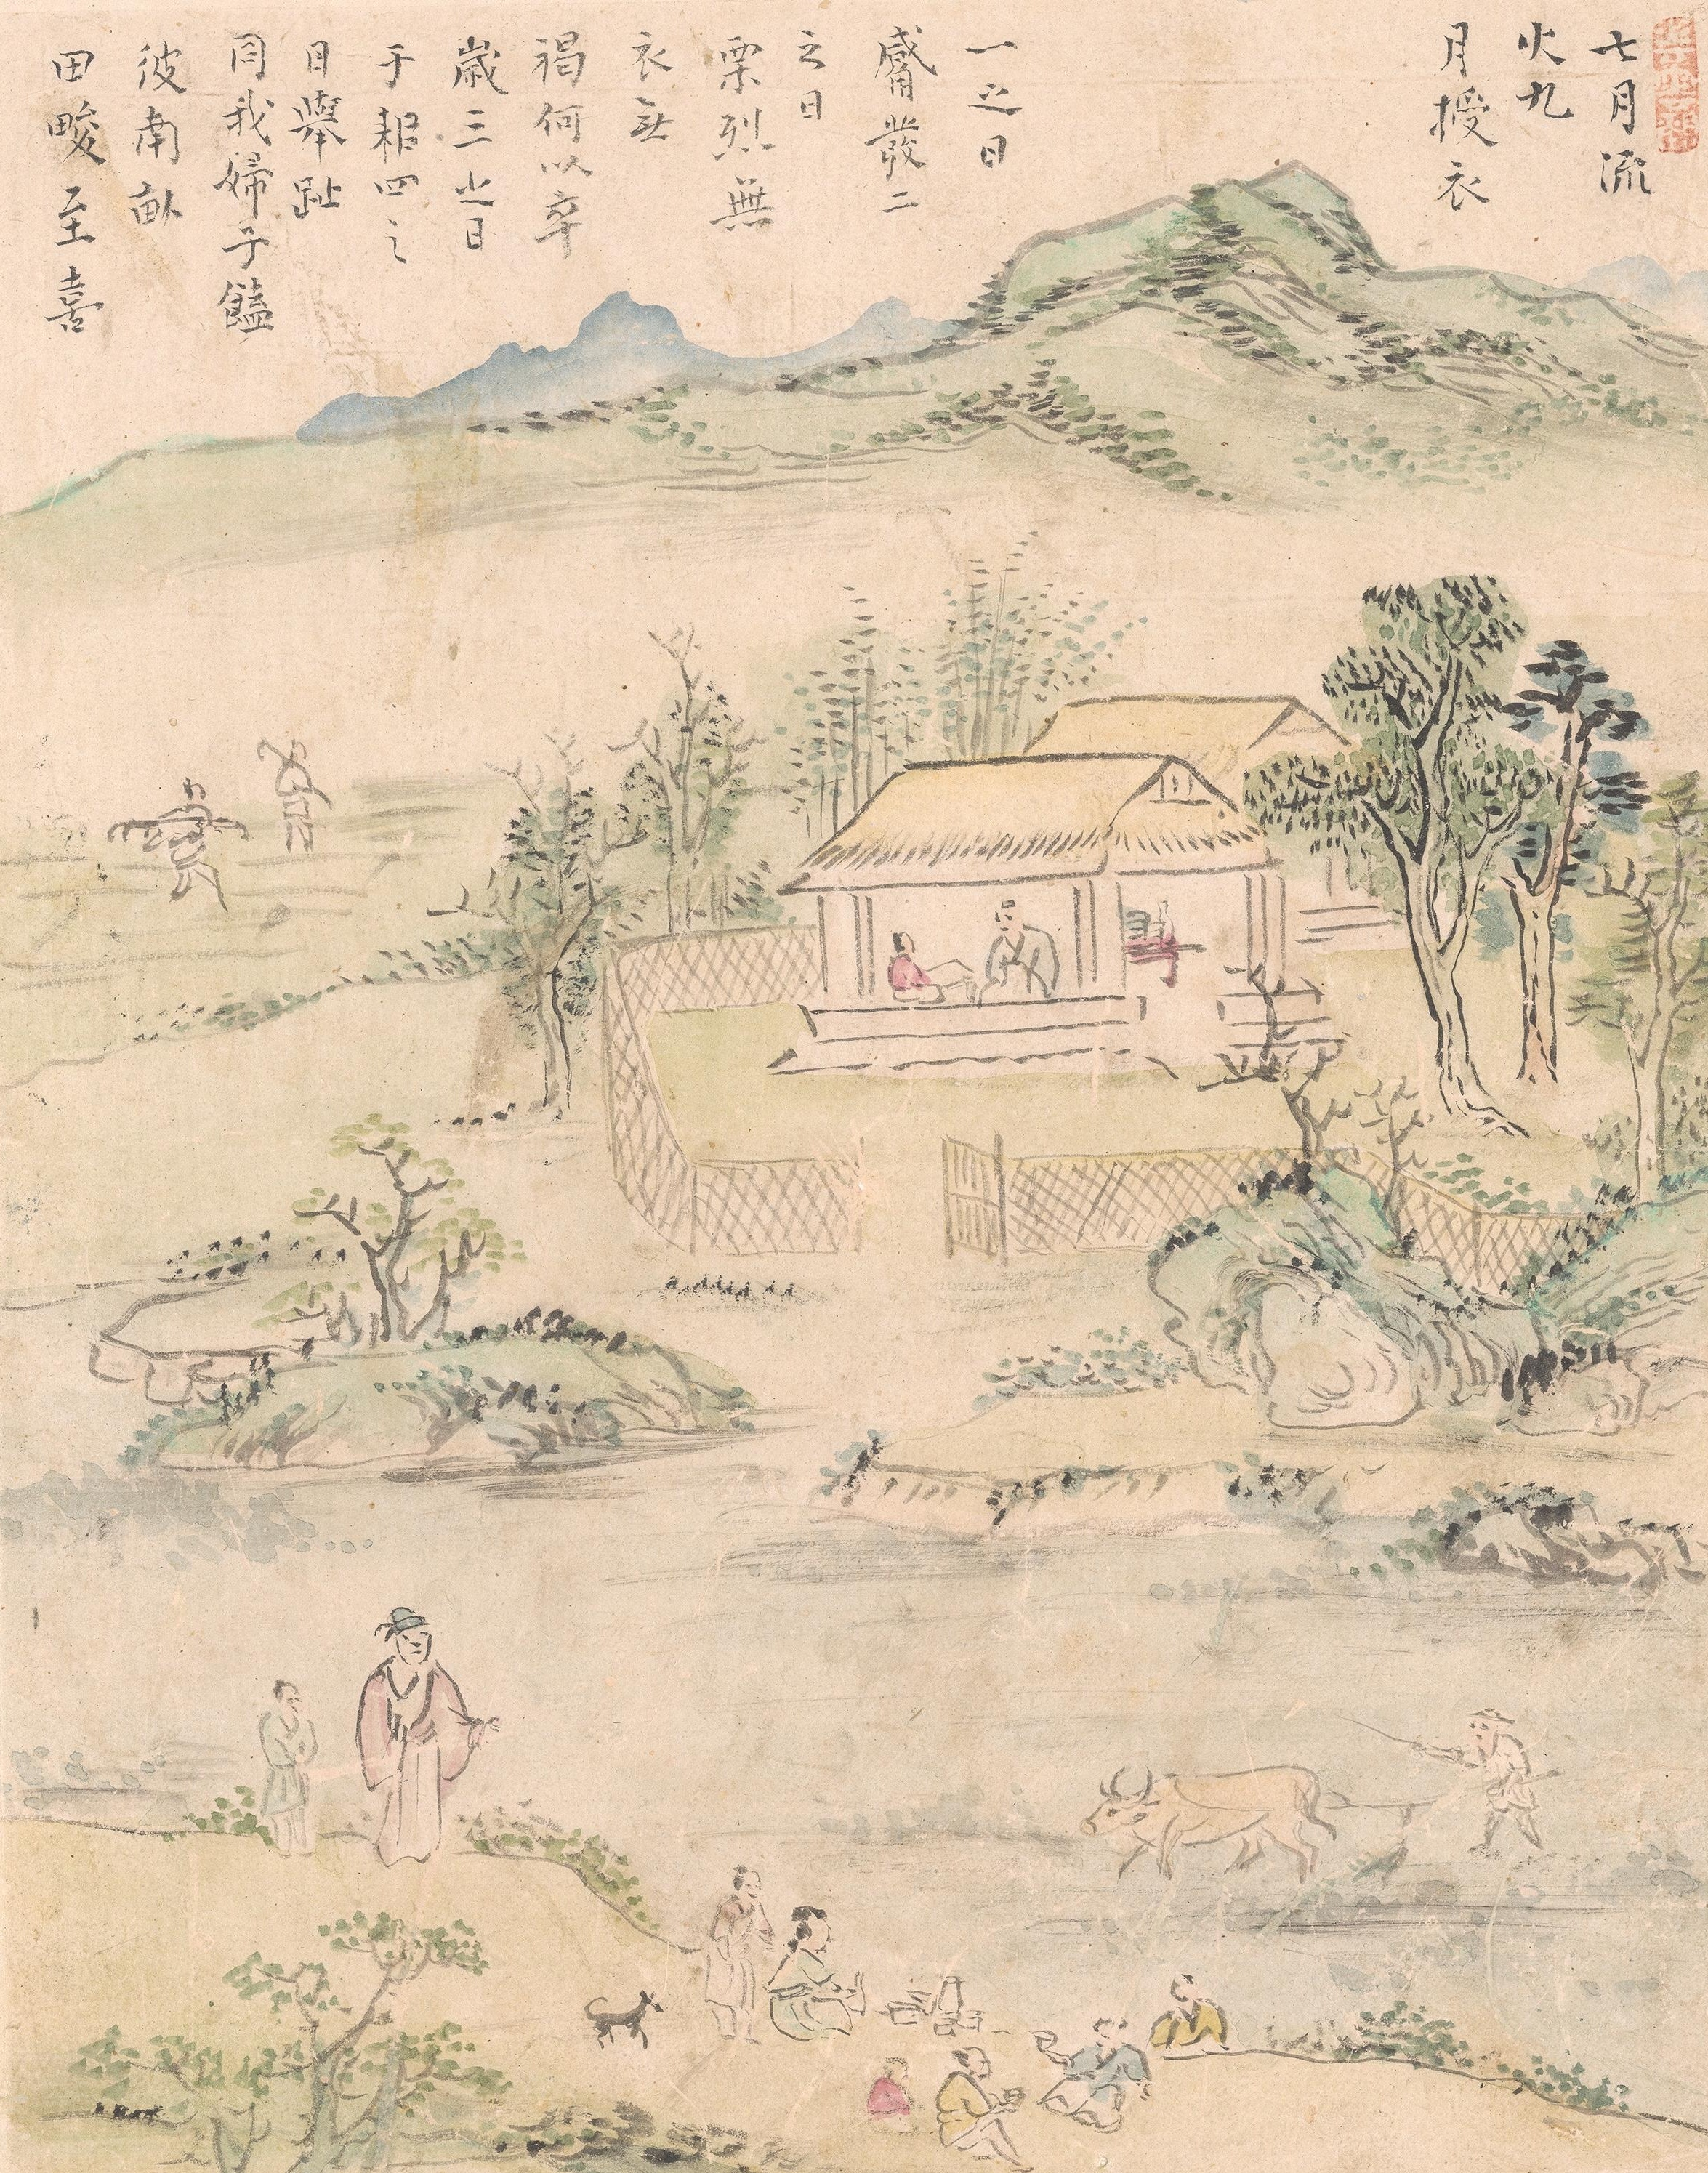 七月流
火九
月授衣
一之日
觱發二
之日
栗烈無
衣無
褐何以卒
歲三之日
于耜四之
日舉趾
同我婦子饁
彼南畝
田畯至喜